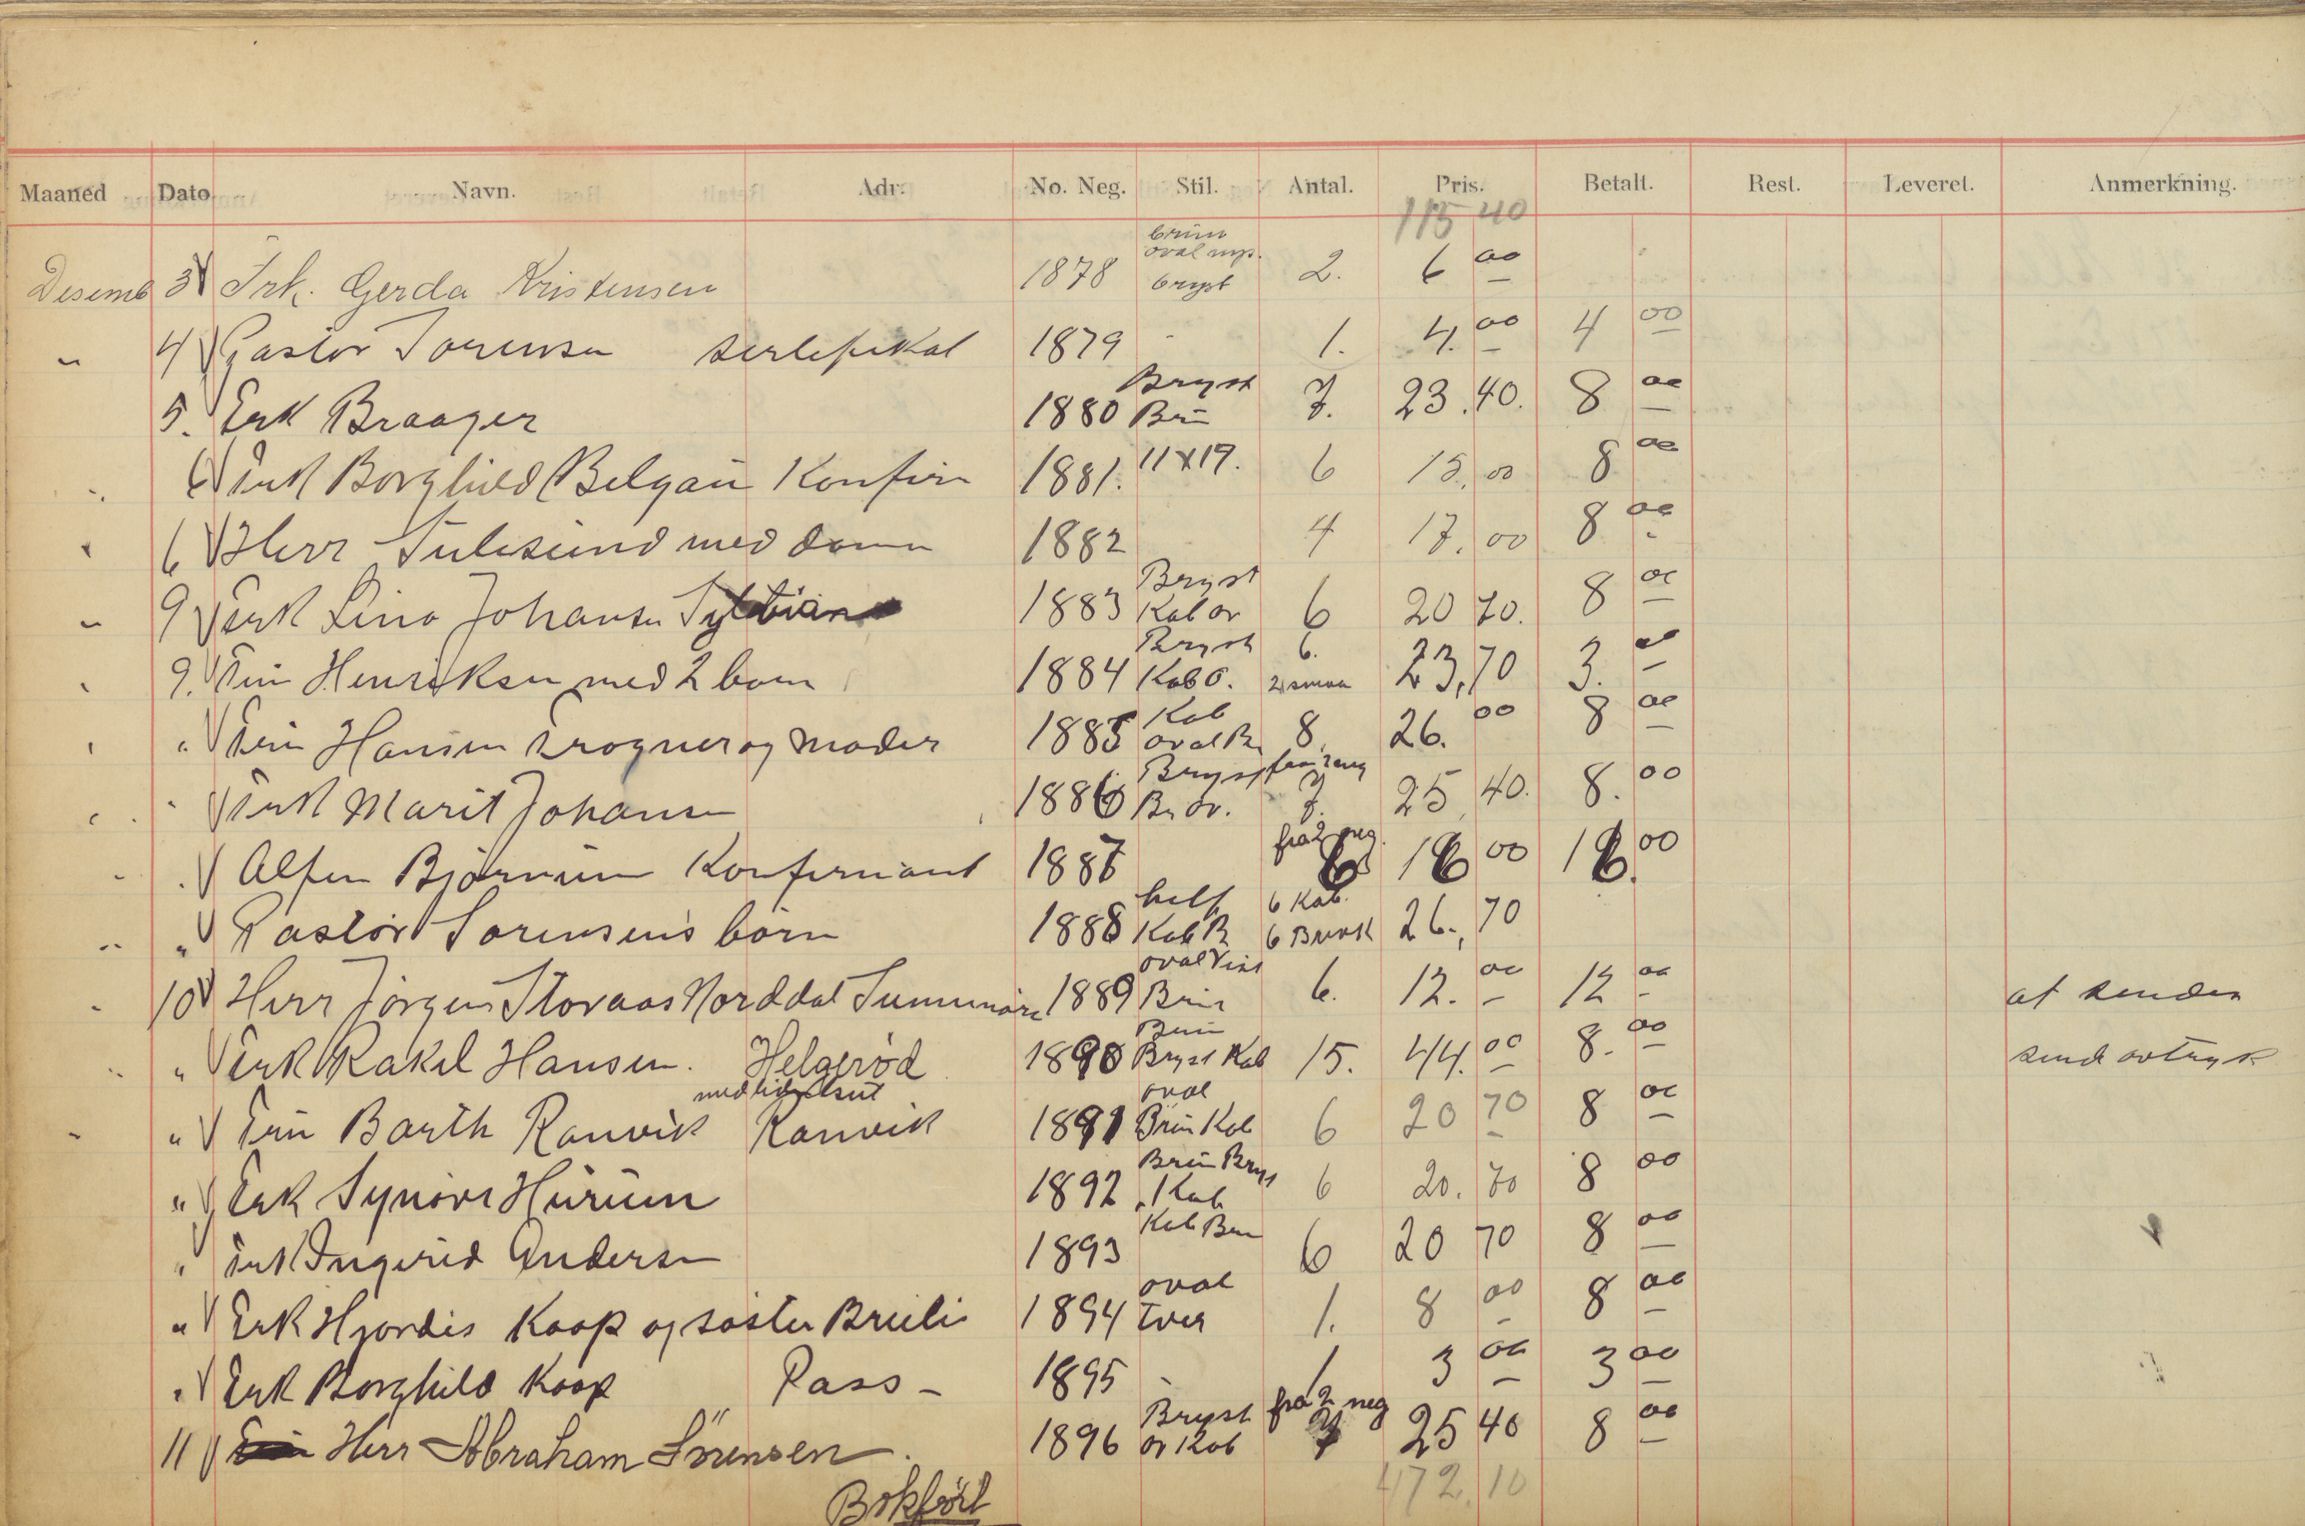 Maaned Dato Navn. Adr. No. Neg. Stil. Antal. Pris. Betalt. Rest. Leveret. Anmerkning.
115 40
Desemb 3 Frk. Gerda Kristensen 1878 brun oval bryst 2. 6 00
" 4 Pastor Sørensen 1879 - 1. 4. 00 4 00
5. Frk Braager 1880 Bryst Brü 7. 23.40. 8 00
" 6 Frk Borghild Belgau Konfir 1881. 11x19. 6 15.00 8 00
" 6 Herr med 1882 4 17.00 8 00
" 9 Frk Lina Johansen 1883 Bryst Kab ov 6 20 70. 8 00
" 9. Frü Henriksen med 2 born 1884 Bryst Kab o. 6. 2 smaa 23,70 3. 00
" " Frü Hansen Frogner og Moder 1885 Kab oval Br 8. 26. 00 8 00
" " Frk Marit Johansen 1886 Bryst Br ov. fra 2 neg 7. 25 40. 8. 00
" " Bjørnüm Konfirmant 1887 fra 2 neg. 6 16 00 16. 00
" " Pastor Sørensens börn 1888 helf Kab B 6 Kab. 6 Brevk 26., 70
" 10 Herr Jörgen Storaas Norddal Sunnmöre 1889 oval Visit Brün 6. 12. 00 12 00 at sendes
" " Frk Rakel Hansen. Helgerød 1890 Brün Bryst Kab 15. 44. 00 8. 00 sende avtryk
" " Frü Barth Ranvik Ranvik 1891 oval Brün Kab 6 20 70 8 00
" Frk Synöve Hürüm 1892 Brün Bryst Kab 6 20. 70 8 00
" Frk Ingerid Andersen 1893 Kab Brun 6 20 70 8 00
" Frk Hjordis Koop og söster 1894 oval Tver 1. 8 00 8 00
" Frk Borghild Koop Pass - 1895 - 1 3 00 3 00
11 Herr Abraham Sörensen. 1896 Bryst ov Kab fra 2 neg 7 25 40 8 00
Bokført
472.10